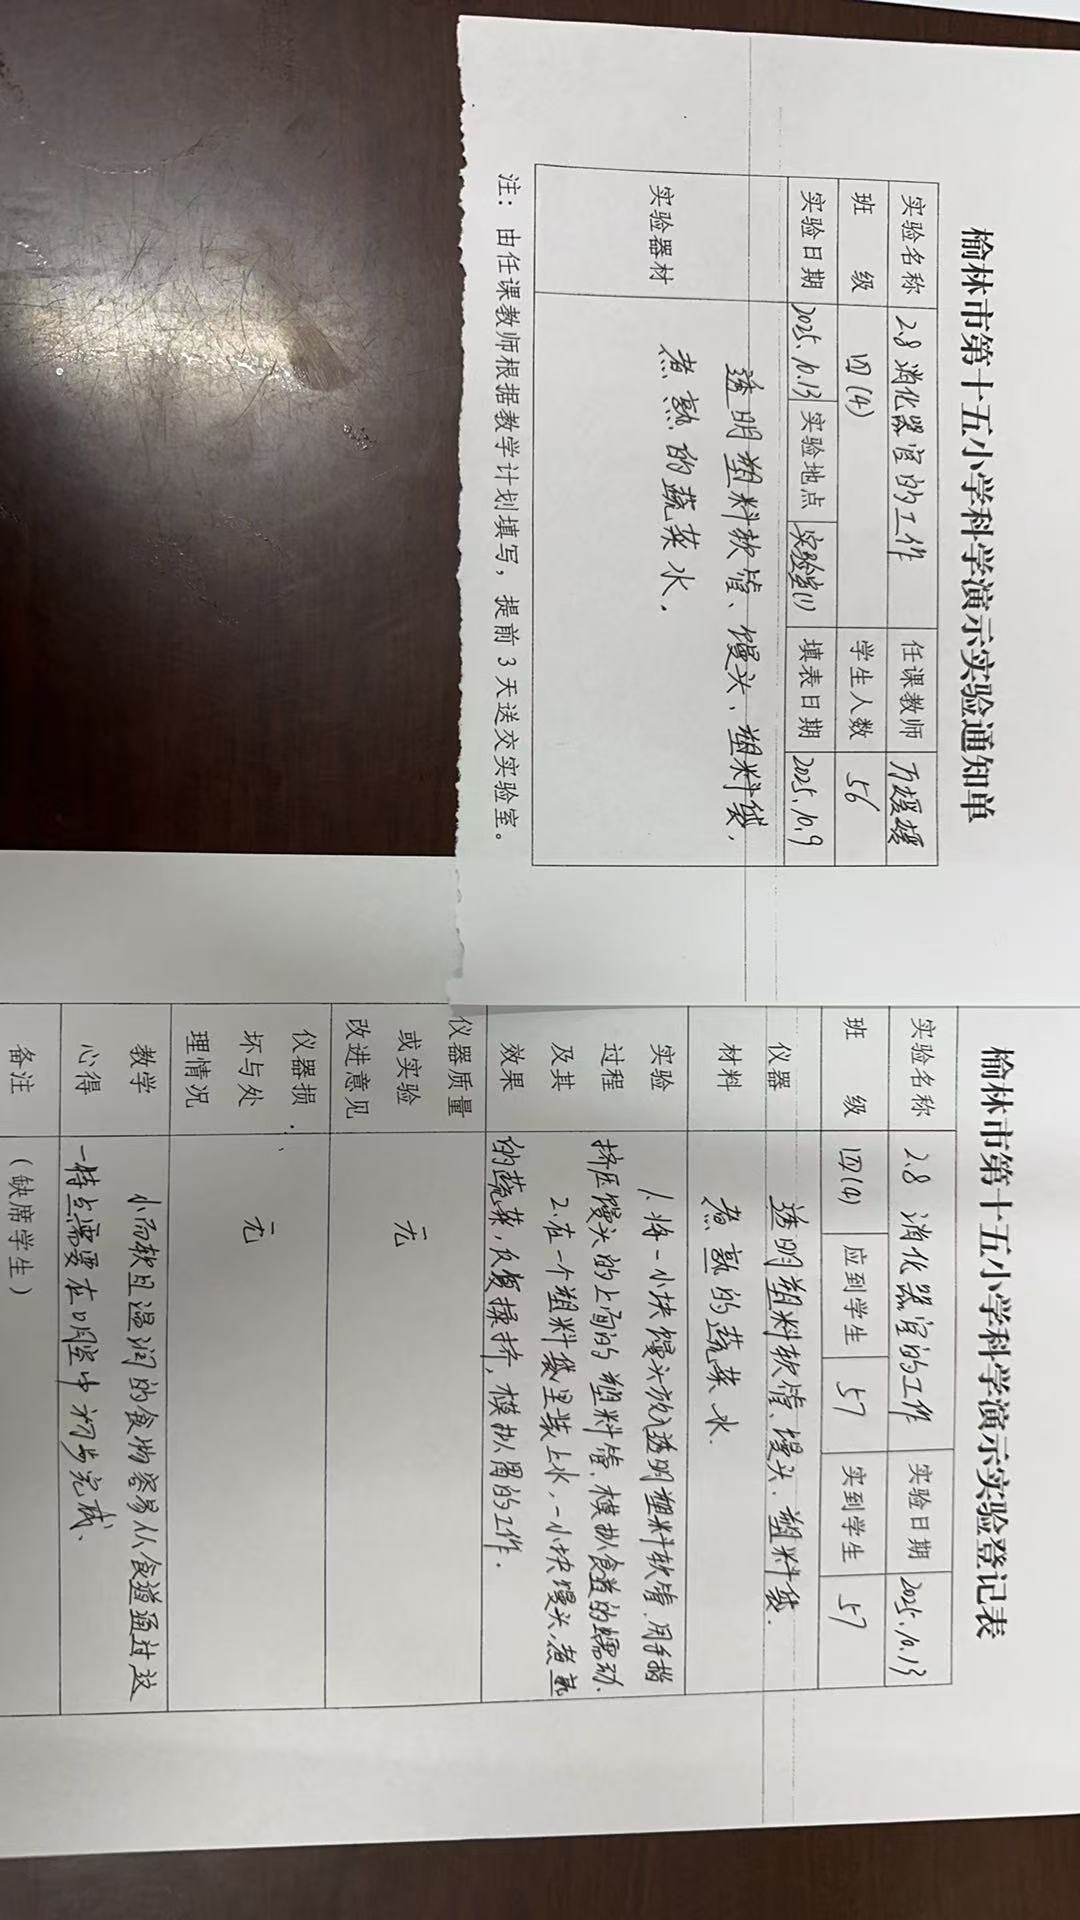 榆林市第十五小学科学演示实验通知单
实验名称 2.8 消化器官的工作 任课教师 万媛媛
班 级 四(4) 学生人数 56
实验日期 2025.10.13 实验地点 实验室(1) 填表日期 2025.10.9
实验器材
透明塑料软管、馒头、塑料袋,
煮熟的蔬菜水.
注：由任课教师根据教学计划填写，提前 3 天送交实验室。
榆林市第十五小学科学演示实验登记表
实验名称 2.8 消化器官的工作 实验日期 2025.10.13
班 级 四(4) 应到学生 57 实到学生 57
仪器
材料
透明塑料软管、馒头、塑料袋.
煮熟的蔬菜水.
实验
过程
及其
效果
1.将一小块馒头放入透明塑料软管.用手指
挤压馒头的上面的塑料管.模拟食道的蠕动.
2.在一个塑料袋里装上水,一小块馒头,煮熟
的蔬菜,反复揉挤,模拟胃的工作.
仪器质量
或实验
改进意见
无
仪器损
坏与处
理情况
无
教学
心得
小而软且湿润的食物容易从食道通过这
一特点需要在口腔中初步完成.
备注
（缺席学生）